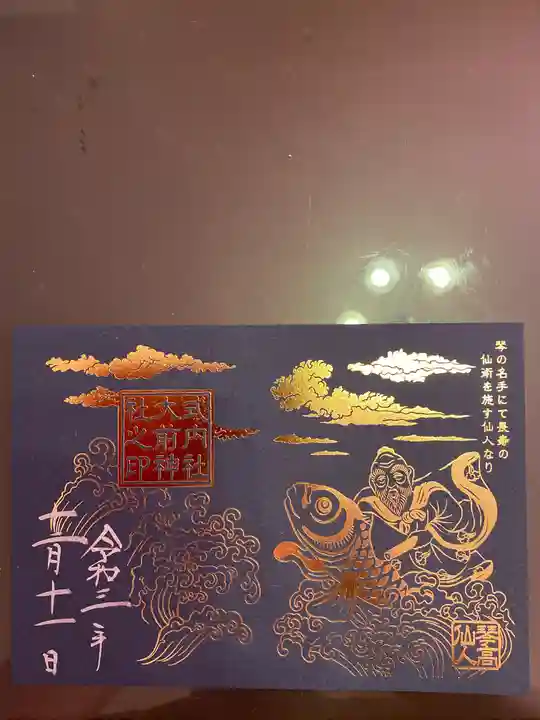 琴の名手にて長寿の
仙術を施す仙人なり
式内社
大前神
社之印
琴高
仙人
令和三年
十二月十一日